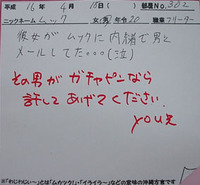 平成 16年 4月 18日 部屋No.302
ニックネーム ムック 女・男 年令 20 職業 フリーター
彼女がムックに内緒で男と
メールしてた…(泣)
その男がガチャピンなら
許してあげてください
you兄
"わじわじぃ~"とは「ムカツク!」「イライラー」などの意味の沖縄方言です